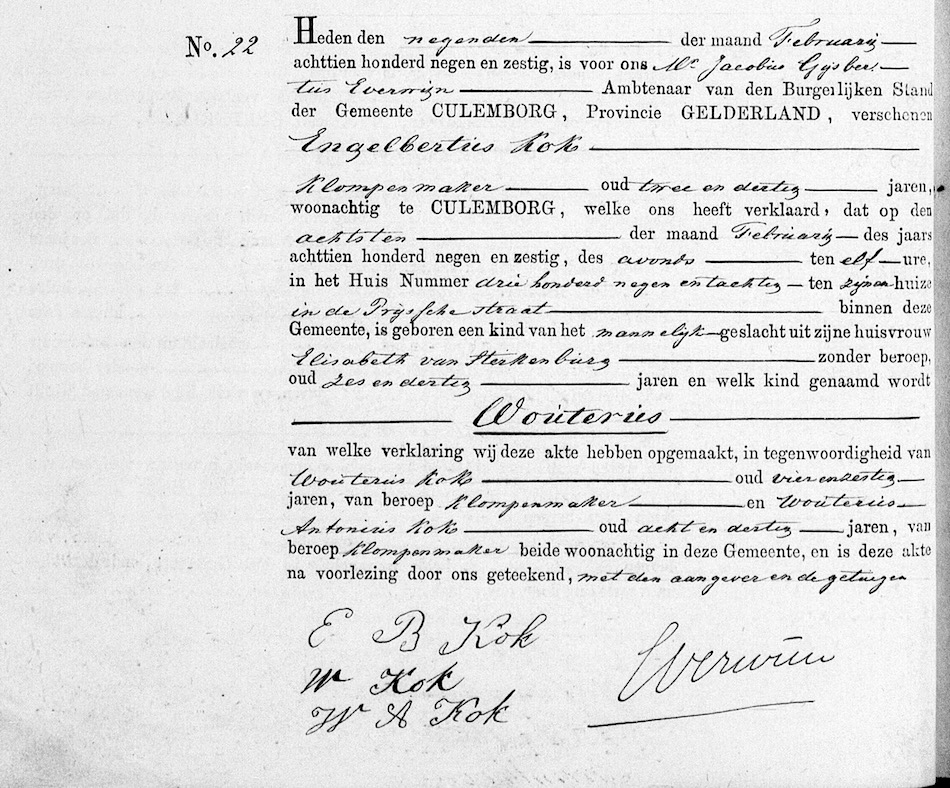 No. 22
Heden den negenden der maand Februarij
achttien honderd negen en zestig, is voor ons Mr. Jacobus Gijsber-
tus Everwijn Ambtenaar van den Burgerlijken Stand
der Gemeente CULEMBORG, Provincie GELDERLAND, verschenen
Engelbertus Kok
Klompenmaker oud twee en dertig jaren,
woonachtig te CULEMBORG, welke ons heeft verklaard, dat op den
achtsten der maand Februarij des jaars
achttien honderd negen en zestig, des avonds ten elf ure,
in het Huis Nummer drie honderd negen en tachtig ten zijnen huize
in de Prijssche straat binnen deze
Gemeente, is geboren een kind van het mannelijk geslacht uit zijne huisvrouw
Elisabeth van Sterkenburg zonder beroep,
oud zes en dertig jaren en welk kind genaamd wordt
Wouterus
van welke verklaring wij deze akte hebben opgemaakt, in tegenwoordigheid van
Wouterus Kok oud vier en zestig
jaren, van beroep klompenmaker en Wouterus
Antonius Kok oud acht en dertig jaren, van
beroep klompenmaker beide woonachtig in deze Gemeente, en is deze akte
na voorlezing door ons geteekend, met den aangever en de getuigen
E B Kok
W Kok
W A Kok
Everwijn